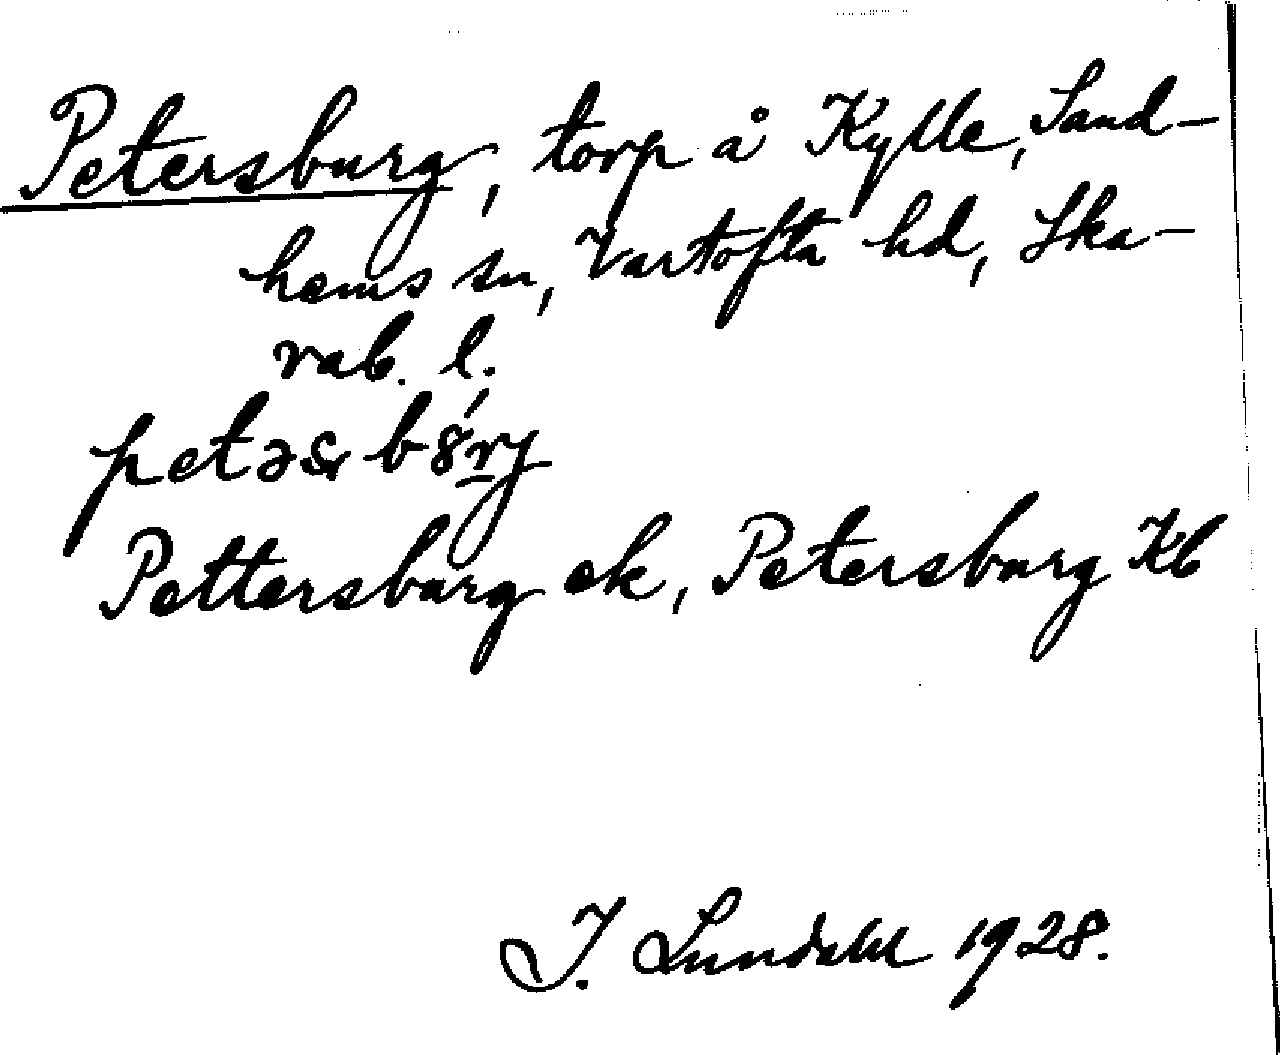 Petersburg, torp å Kylle, Sand-
hems sn, Vartofta hd, Ska-
rab. l.
Pettersburg ek, Petersburg Kb
I. Lundahl 1928.